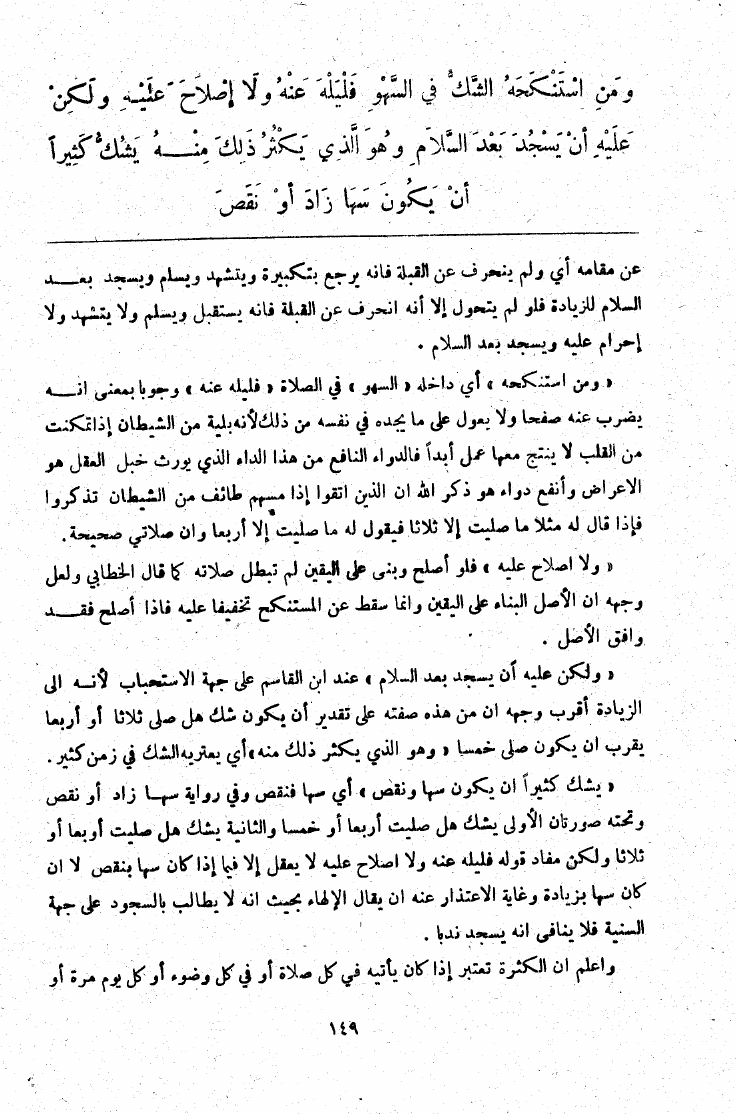 وَمَنِ اسْتَنْكَحَهُ الشَّكُّ فِي السَّهْوِ فَلْيَلْهَ عَنْهُ وَلَا إِصْلَاحَ عَلَيْهِ وَلَكِنْ
عَلَيْهِ أَنْ يَسْجُدَ بَعْدَ السَّلَامِ وَهُوَ الَّذِي يَكْثُرُ ذَلِكَ مِنْهُ يَشُكُّ كَثِيراً
أَنْ يَكُونَ سَهَا زَادَ أَوْ نَقَصَ
عن مقامه أي ولم ينحرف عن القبلة فانه يرجع بتكبيرة ويتشهد ويسلم ويسجد بعد
السلام للزيادة فلو لم يتحول إلا أنه انحرف عن القبلة فانه يستقبل ويسلم ولا يتشهد ولا
إحرام عليه ويسجد بعد السلام .
« ومن استنكحه » أي داخله « السهو » في الصلاة « فليله عنه » وجوبا بمعنى انه
يضرب عنه صفحا ولا يعول على ما يجده في نفسه من ذلك لأنه بلية من الشيطان إذا تمكنت
من القلب لا ينتج معها عمل أبداً فالدواء النافع من هذا الداء الذي يورث خبل العقل هو
الاعراض وأنفع دواء هو ذكر الله ان الذين اتقوا إذا مسهم طائف من الشيطان تذكروا
فإذا قال له مثلا ما صليت إلا ثلاثا فيقول له ما صليت إلا أربعا وان صلاتي صحيحة .
« ولا اصلاح عليه » فلو أصلح وبنى على اليقين لم تبطل صلاته كما قال الخطابي ولعل
وجهه ان الأصل البناء على اليقين وانما سقط عن المستنكح تخفيفا عليه فاذا أصلح فقد
وافق الأصل .
« ولكن عليه أن يسجد بعد السلام » عند ابن القاسم على جهة الاستحباب لأنه الى
الزيادة أقرب وجهه ان من هذه صفته على تقدير أن يكون شك هل صلى ثلاثا أو أربعا
يقرب ان يكون صلى خمسا « وهو الذي يكثر ذلك منه » أي يعتريه الشك في زمن كثير .
« يشك كثيراً ان يكون سها ونقص » أي سها فنقص وفي رواية سها زاد أو نقص
وتحته صورتان الأولى يشك هل صليت أربعا أو خمسا والثانية يشك هل صليت أوبعا أو
ثلاثا ولكن مفاد قوله فليله عنه ولا اصلاح عليه لا يعقل إلا فيما إذا كان سها بنقص لا ان
كان سها بزيادة وغاية الاعتذار عنه ان يقال الإلهاء بحيث انه لا يطالب بالسجود على جهة
السنية فلا ينافى انه يسجد ندبا .
واعلم ان الكثرة تعتبر إذا كان يأتيه في كل صلاة أو في كل وضوء أو كل يوم مرة أو
١٤٩